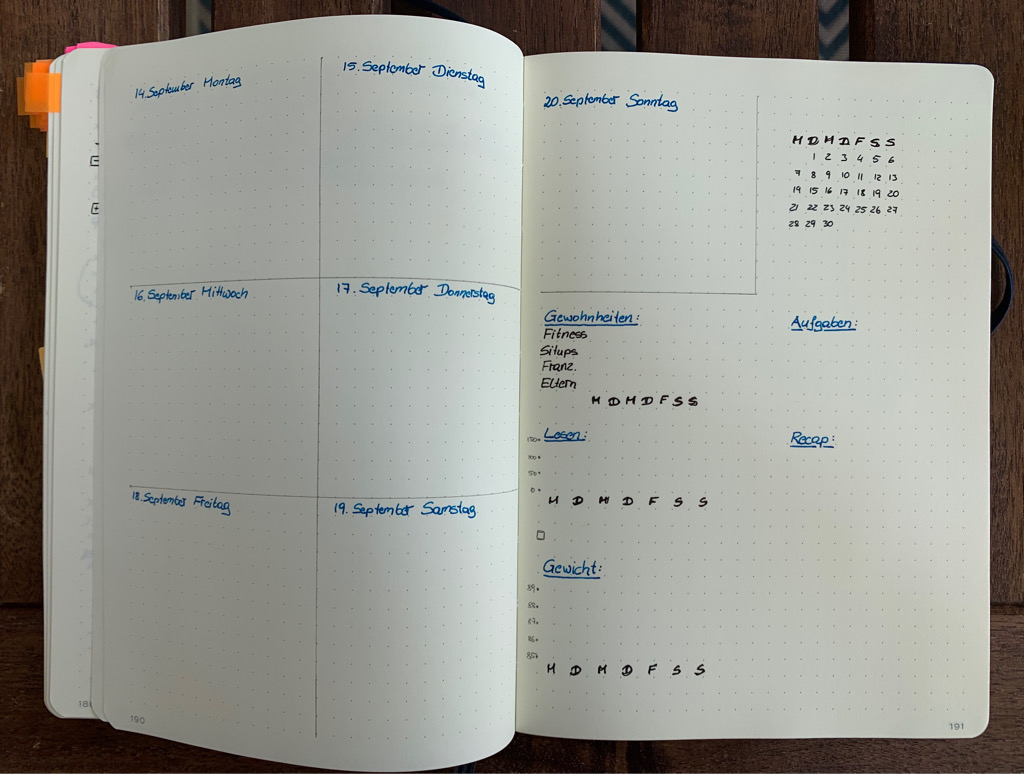 14. September Montag
15. September Dienstag
16. September Mittwoch
17. September Donnerstag
18. September Freitag
19. September Samstag
190
20. September Sonntag
M D M D F S S
1 2 3 4 5 6
7 8 9 10 11 12 13
14 15 16 17 18 19 20
21 22 23 24 25 26 27
28 29 30
Gewohnheiten:
Fitness
Situps
Franz.
Eltern
M D M D F S S
Aufgaben:
Lesen:
150
100
50
0
M D M D F S S
Recap:
Gewicht:
89
88
87
86
85
M D M D F S S
191